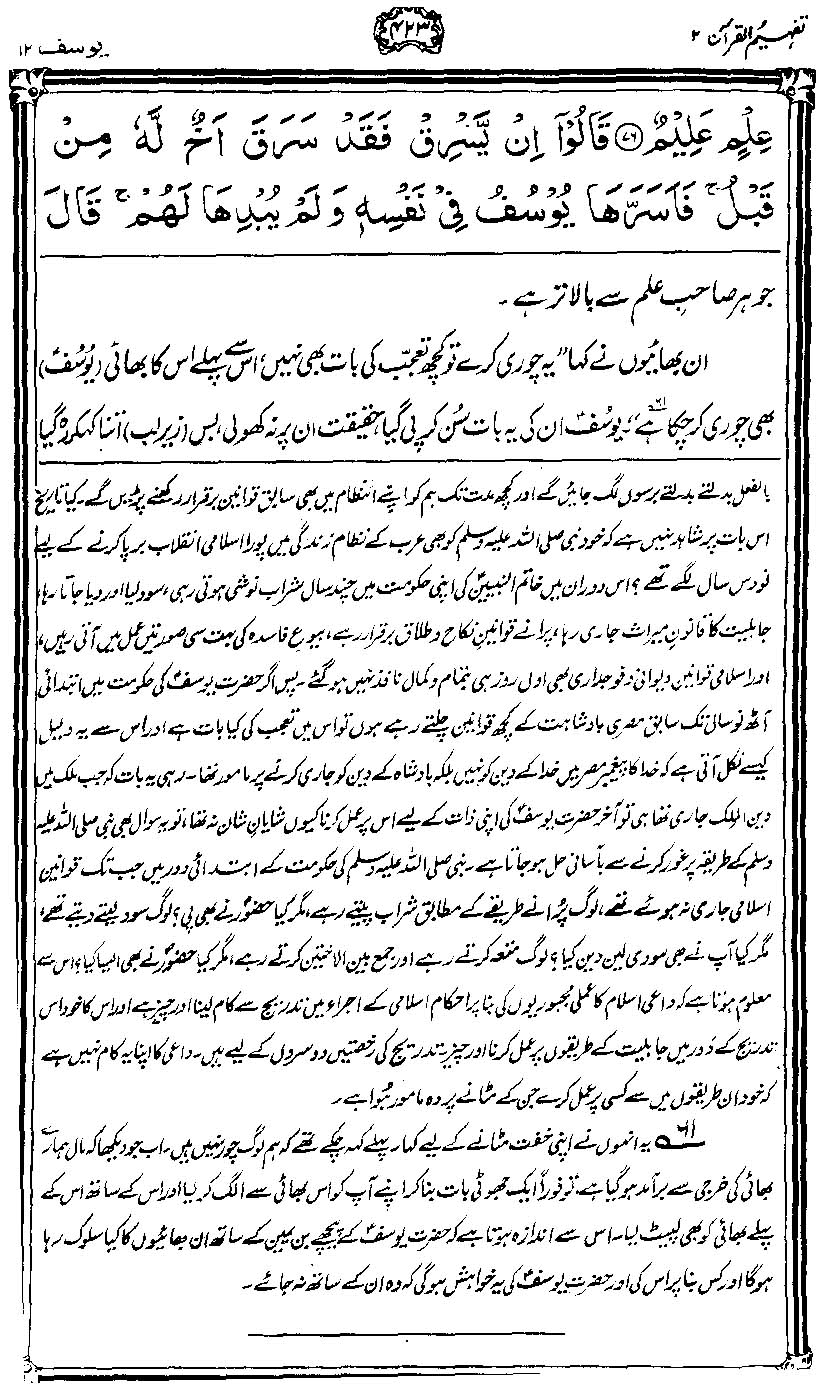 تفہیم القرآن ۲
۴۲۳
یوسف ۱۲
عِلْمٍ عَلِيْمٌ ﴿۷۶﴾ قَالُوْٓا اِنْ يَّسْرِقْ فَقَدْ سَرَقَ اَخٌ لَّهٗ مِنْ
قَبْلُ ۚ فَاَسَرَّهَا يُوْسُفُ فِيْ نَفْسِهٖ وَلَمْ يُبْدِهَا لَهُمْ ۚ قَالَ
جو ہر صاحبِ علم سے بالاتر ہے۔
ان بھائیوں نے کہا ”یہ چوری کرے تو کچھ تعجّب کی بات بھی نہیں، اس سے پہلے اس کا بھائی (یُوسُفؑ)
بھی چوری کر چکا ہے“۶۱۔ یوسُفؑ ان کی یہ بات سُن کر پی گیا، حقیقت ان پر نہ کھولی، بس (زیرِ لب) اتنا کہہ کر رہ گیا
بالفعل بدلتے بدلتے برسوں لگ جائیں گے اور کچھ مدت تک ہم کو اپنے انتظام میں بھی سابق قوانین برقرار رکھنے پڑیں گے۔ کیا تاریخ
اس بات پر شاہد نہیں ہے کہ خود نبی صلی اللہ علیہ وسلم کو بھی عرب کے نظام زندگی میں پورا اسلامی انقلاب برپا کرنے کے لیے
نو دس سال لگے تھے؟ اس دوران میں خاتم النبیینؐ کی اپنی حکومت میں چند سال شراب نوشی ہوتی رہی، سود لیا اور دیا جاتا رہا،
جاہلیت کا قانونِ میراث جاری رہا، پرانے قوانینِ نکاح و طلاق برقرار رہے، بیوعِ فاسدہ کی بہت سی صورتیں عمل میں آتی رہیں،
اور اسلامی قوانین دیوانی و فوجداری بھی اول روز ہی بتمام و کمال نافذ نہیں ہو گئے۔ پس اگر حضرت یوسفؑ کی حکومت میں ابتدائی
آٹھ نو سال تک سابق مصری بادشاہت کے کچھ قوانین چلتے رہے ہوں تو اس میں تعجب کی کیا بات ہے اور اس سے یہ دلیل
کیسے نکل آتی ہے کہ خدا کا پیغمبر مصر میں خدا کے دین کو نہیں بلکہ بادشاہ کے دین کو جاری کرنے پر مامور تھا۔ رہی یہ بات کہ جب ملک میں
دین الملک جاری تھا ہی تو آخر حضرت یوسفؑ کی اپنی ذات کے لیے اس پر عمل کرنا کیوں شایانِ شان نہ تھا، تو یہ سوال بھی نبی صلی اللہ علیہ
وسلم کے طریقہ پر غور کرنے سے بآسانی حل ہو جاتا ہے۔ نبی صلی اللہ علیہ وسلم کی حکومت کے ابتدائی دور میں جب تک قوانین
اسلامی جاری نہ ہوئے تھے، لوگ پُرانے طریقے کے مطابق شراب پیتے رہے، مگر کیا حضورؐ نے بھی پی؟ لوگ سود لیتے دیتے تھے،
مگر کیا آپ نے بھی سودی لین دین کیا؟ لوگ متعہ کرتے رہے اور جمع بین الاختین کرتے رہے، مگر کیا حضورؐ نے بھی ایسا کیا؟ اس سے
معلوم ہوتا ہے کہ داعی اسلام کا عملی مجبوریوں کی بنا پر احکام اسلامی کے اجراء میں تدریج سے کام لینا اور چیز ہے اور اس کا خود اس
تدریج کے دَور میں جاہلیت کے طریقوں پر عمل کرنا اور چیز۔ تدریج کی رخصتیں دوسروں کے لیے ہیں۔ داعی کا اپنا یہ کام نہیں ہے
کہ خود ان طریقوں میں سے کسی پر عمل کرے جن کے مٹانے پر وہ مامور ہُوا ہے۔
۶۱ یہ انہوں نے اپنی خفت مٹانے کے لیے کہا۔ پہلے کہہ چکے تھے کہ ہم لوگ چور نہیں ہیں۔ اب جو دیکھا کہ مال ہمارے
بھائی کی خرجی سے برآمد ہو گیا ہے، تو فوراً ایک جھوٹی بات بنا کر اپنے آپ کو اس بھائی سے الگ کر لیا اور اس کے ساتھ اس کے
پہلے بھائی کو بھی لپیٹ لیا۔ اس سے اندازہ ہوتا ہے کہ حضرت یوسفؑ کے پیچھے بن یمین کے ساتھ ان بھائیوں کا کیا سلوک رہا
ہوگا اور کس بنا پر اس کی اور حضرت یوسفؑ کی یہ خواہش ہوگی کہ وہ ان کے ساتھ نہ جائے۔